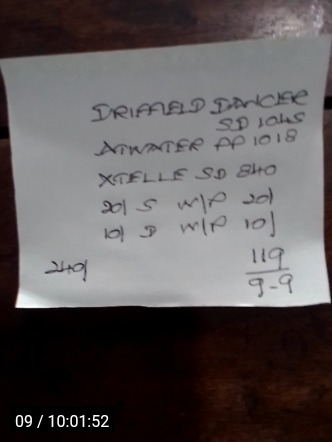 DRIFFIELD DANCER
SD 1045
ATWATER PP 1018
XTELLE SD 840
20/ S W/P 20/
10/ D W/P 10/
240/
119
9-9
09 / 10:01:52